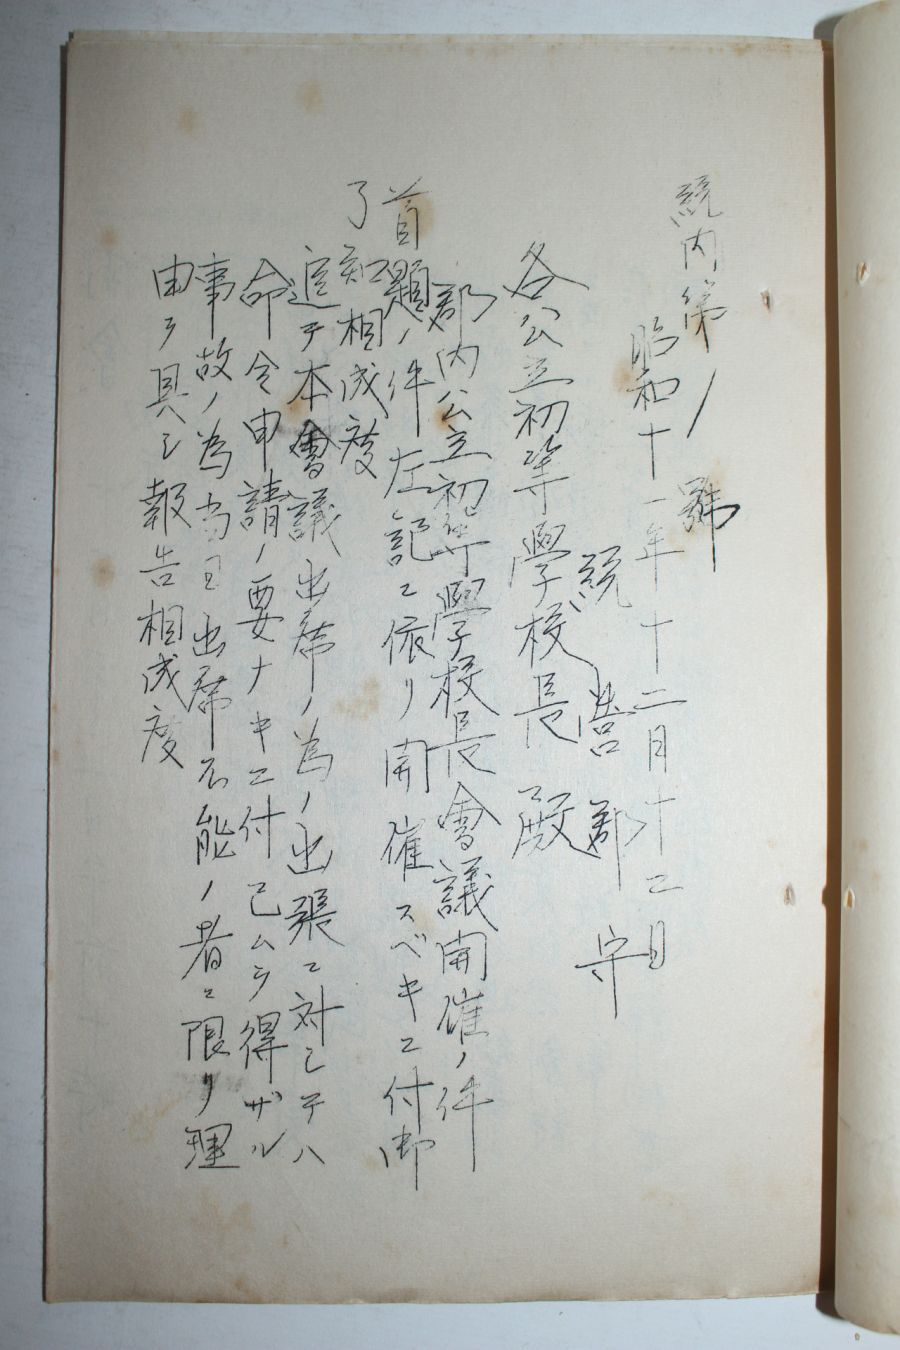 統内第ノ號
昭和十一年十二月十二日
統営郡守
各公立初等學校長殿
郡内公立初等學校長會議開催ノ件
首題ノ件左記ニ依リ開催スベキニ付御
了知相成度
追テ本會議出席ノ為ノ出張ニ対シテハ
命令申請ノ要ナキニ付已ムヲ得ザル
事故ノ為当日出席不能ノ者ニ限リ理
由ヲ具シ報告相成度